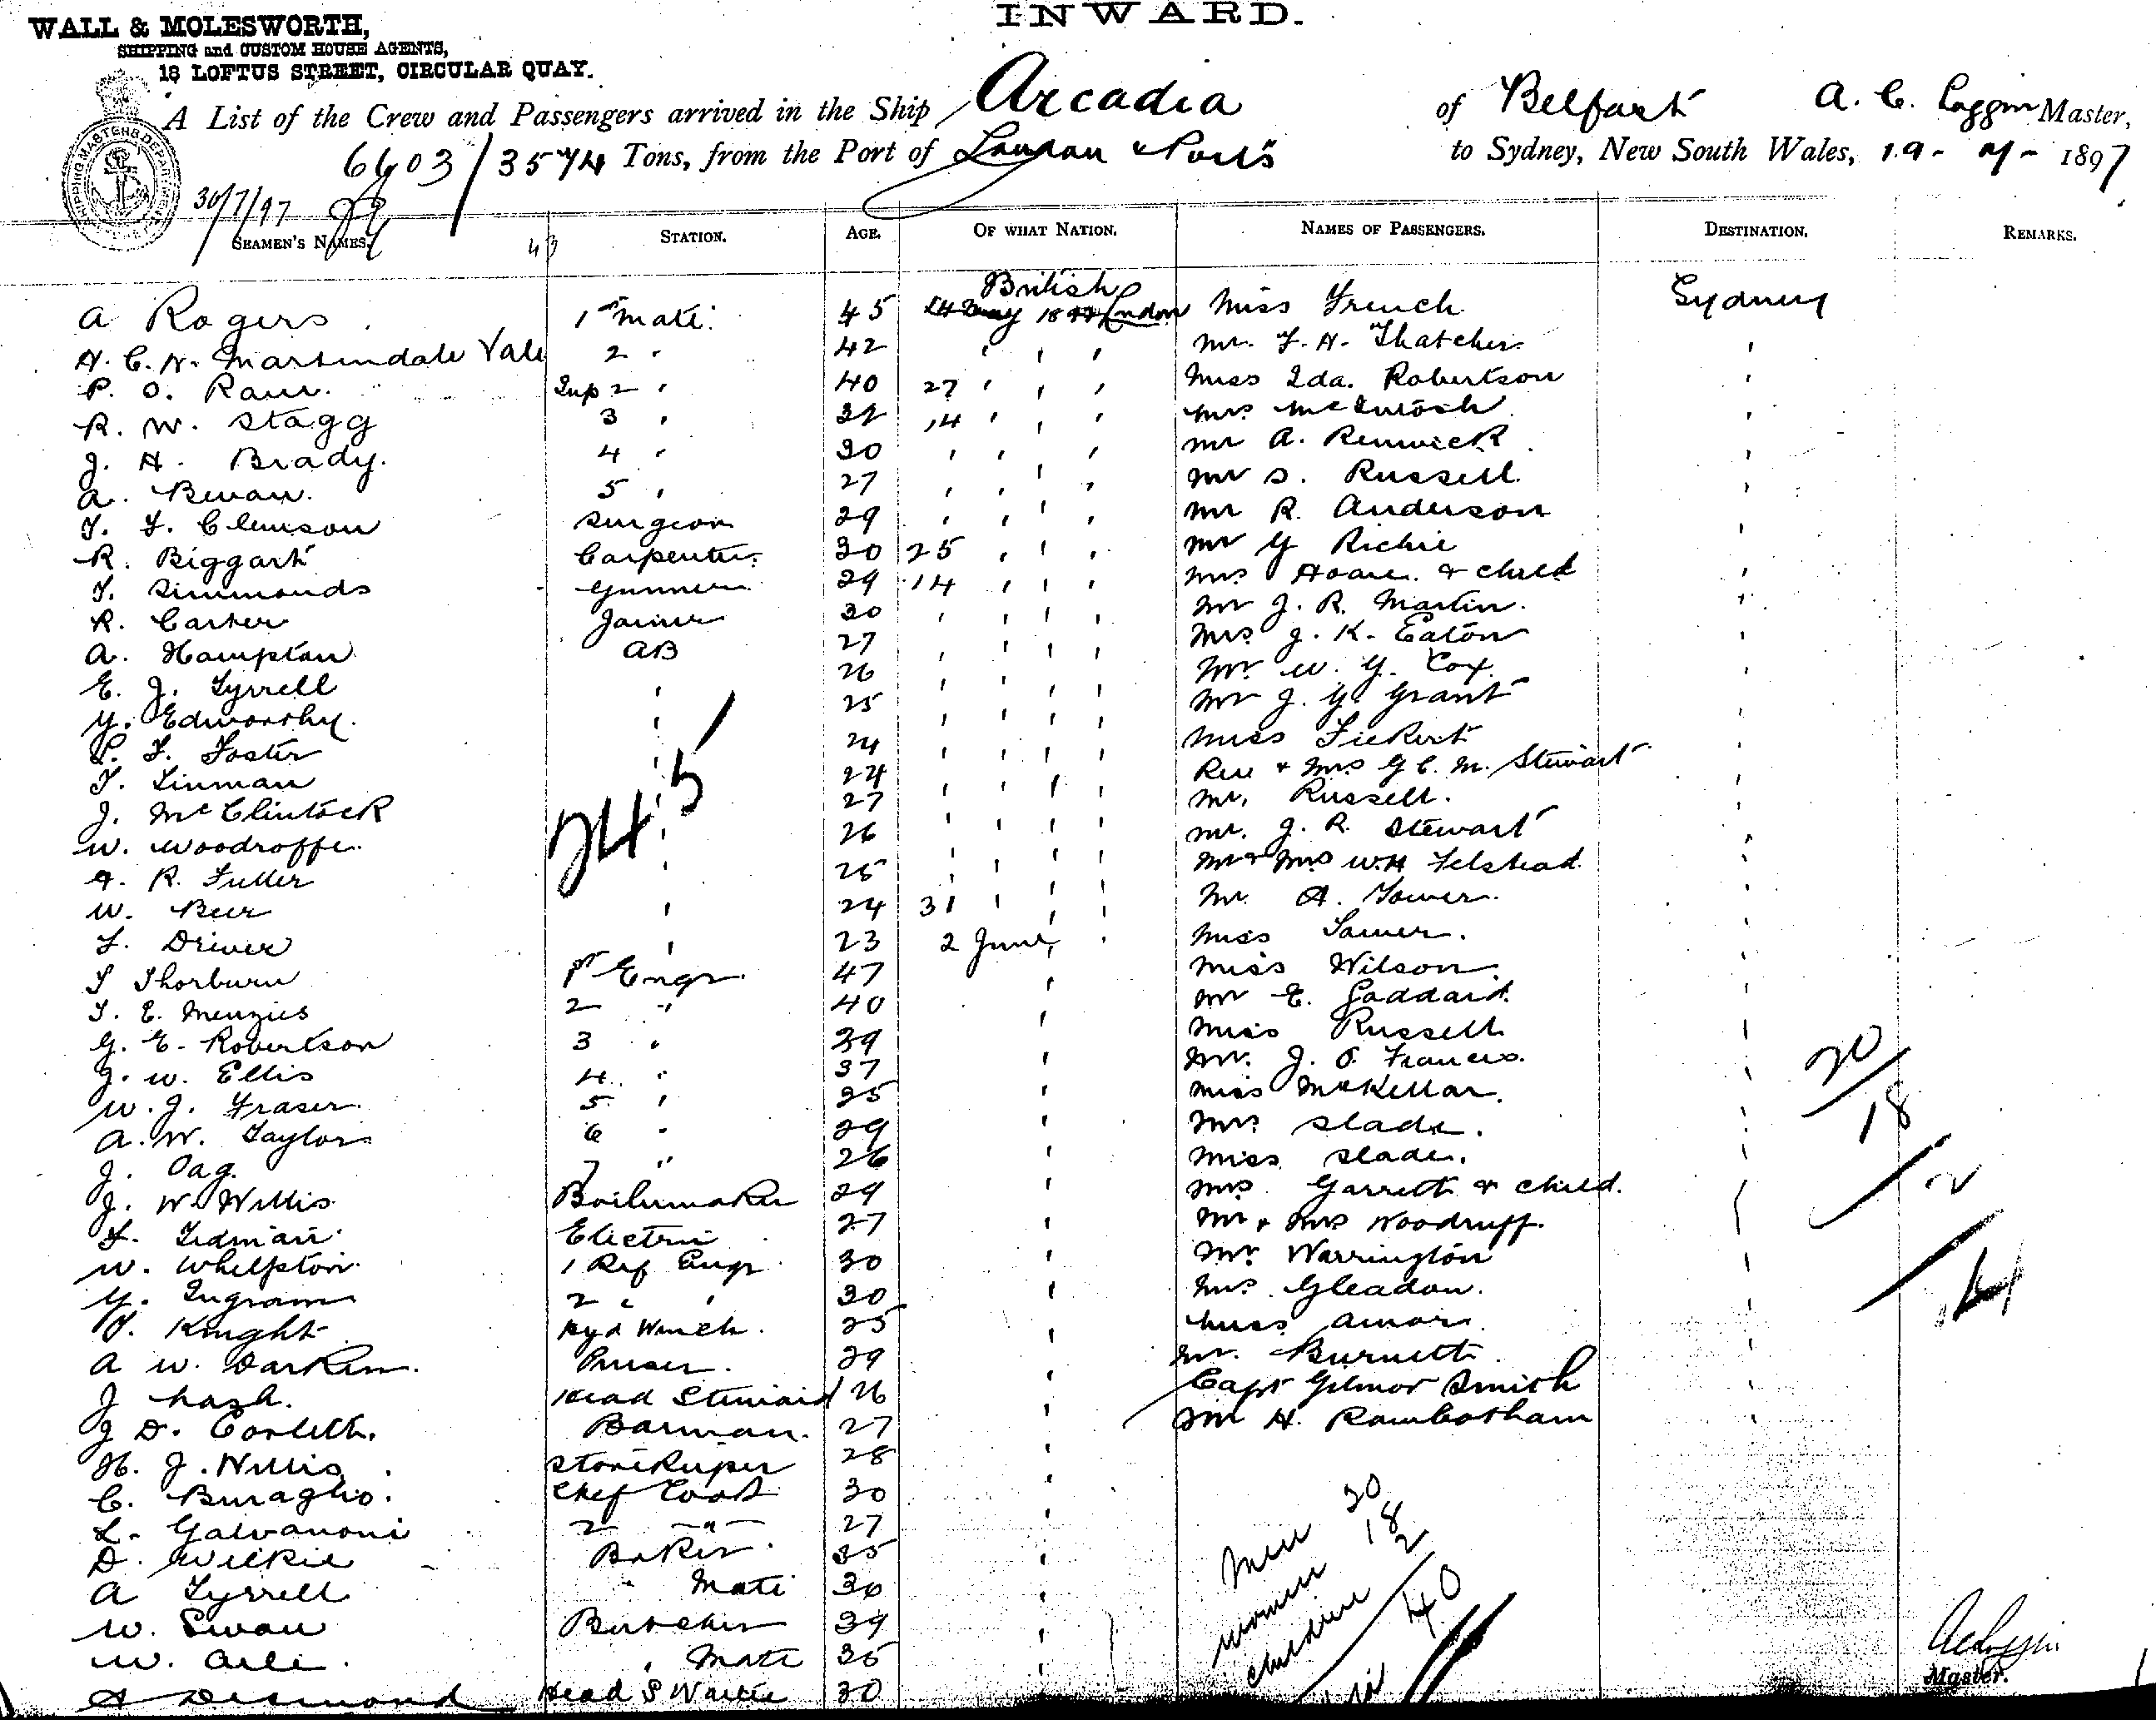 INWARD.
WALL & MOLESWORTH,
SHIPPING and CUSTOM HOUSE AGENTS,
18 LOFTUS STREET, CIRCULAR QUAY.
A List of the Crew and Passengers arrived in the Ship Arcadia of Belfast A. C. Loggin Master,
6603/3574 Tons, from the Port of London & Ports to Sydney, New South Wales, 19- 7- 1897
30/7/97
SEAMEN'S NAMES. STATION. AGE. OF WHAT NATION. NAMES OF PASSENGERS. DESTINATION. REMARKS.
British
A Rogers 1st Mate 45 London Miss French Sydney
H. C. N. Martindale Vale 2 " 42 " " " Mr. F. H. Thatcher "
P. O. Sup 2 " 40 27 " " " Miss Ida. Robertson "
R. W. Stagg 3 " 32 14 " " " Mrs McIntosh "
J. H. Brady. 4 " 30 " " " " Mr A. Renwick "
A. Bevan. 5 " 27 " " " " Mr S. Russell "
T. F. Clemson Surgeon 29 " " " " Mr R. Anderson "
R. Biggart Carpenter 30 25 " " " Mr G Richie "
T. Simmonds Gunner 29 14 " " " Mrs Hoare & child "
R. Carter Joiner 30 " " " " Mr J. R. Martin. "
A. Hampton AB 27 " " " " Mrs J. K. Eaton "
E. J. Tyrrell " 26 " " " " Mr W. G. Cox "
G. Edworthy. " 25 " " " " Mr J. G. Grant "
P. F. Foster " 24 " " " " Miss Fickert "
T. Linman " 24 " " " " Rev & Mrs G C. M. Stewart "
J. McClintock " 27 " " " " Mr. Russell. "
W. Woodroffe. " 26 " " " " Mr. J. R. Stewart "
A. R. Fuller " 25 " " " " Mr & Mrs W.H Felstead "
W. Beer " 24 31 " " " Mr. A. "
F. Driver " 23 2 June " " Miss "
T Thorburn 1st Engr 47 " Miss Wilson. "
T. E. Menzies 2 " 40 " Mr E. Goddard. "
G. E. Robertson 3 " 39 " Miss Russell "
J. W. Ellis 4 " 37 " Mr. J. O. Francis. "
W. J. Fraser. 5 " 35 " Miss McKellar. "
A. W. Taylor 6 " 29 " Mrs Slade. "
J. Oag. 7 " 26 " Miss Slade. "
J. W. Willis Boilermaker 29 " Mrs. Garrett & child. "
F. Tidman Electri 27 " Mr & Mrs Woodruff. "
W. Whelpton. 1 Ref Engr 30 " Mr. Warrington "
G. Ingram 2 " " 30 " Mrs. Gleadow. "
T. Knight Hyd Winch. 35 " Miss Amor. "
A W. Darken. Purser. 29 " Mr. Burnett. "
J Nash. Head Steward 26 " Capt Gilmor Smith "
J D. Corlett. Barman. 27 " Mr H. Rambotham "
H. J. Willis Storekeeper 28 "
C. Buraglio. Chef Cook 30 "
L. Galvanoni 2 " 27 "
D. Wilkie Baker 35 "
A Tyrrell " Mate 30 "
W. Swan Butcher 39 "
W. " Mate 35 "
A Desmond Head S Waiter 30
245
20/18
/2
/14
Men 20
women 18
children 2
40
Master.